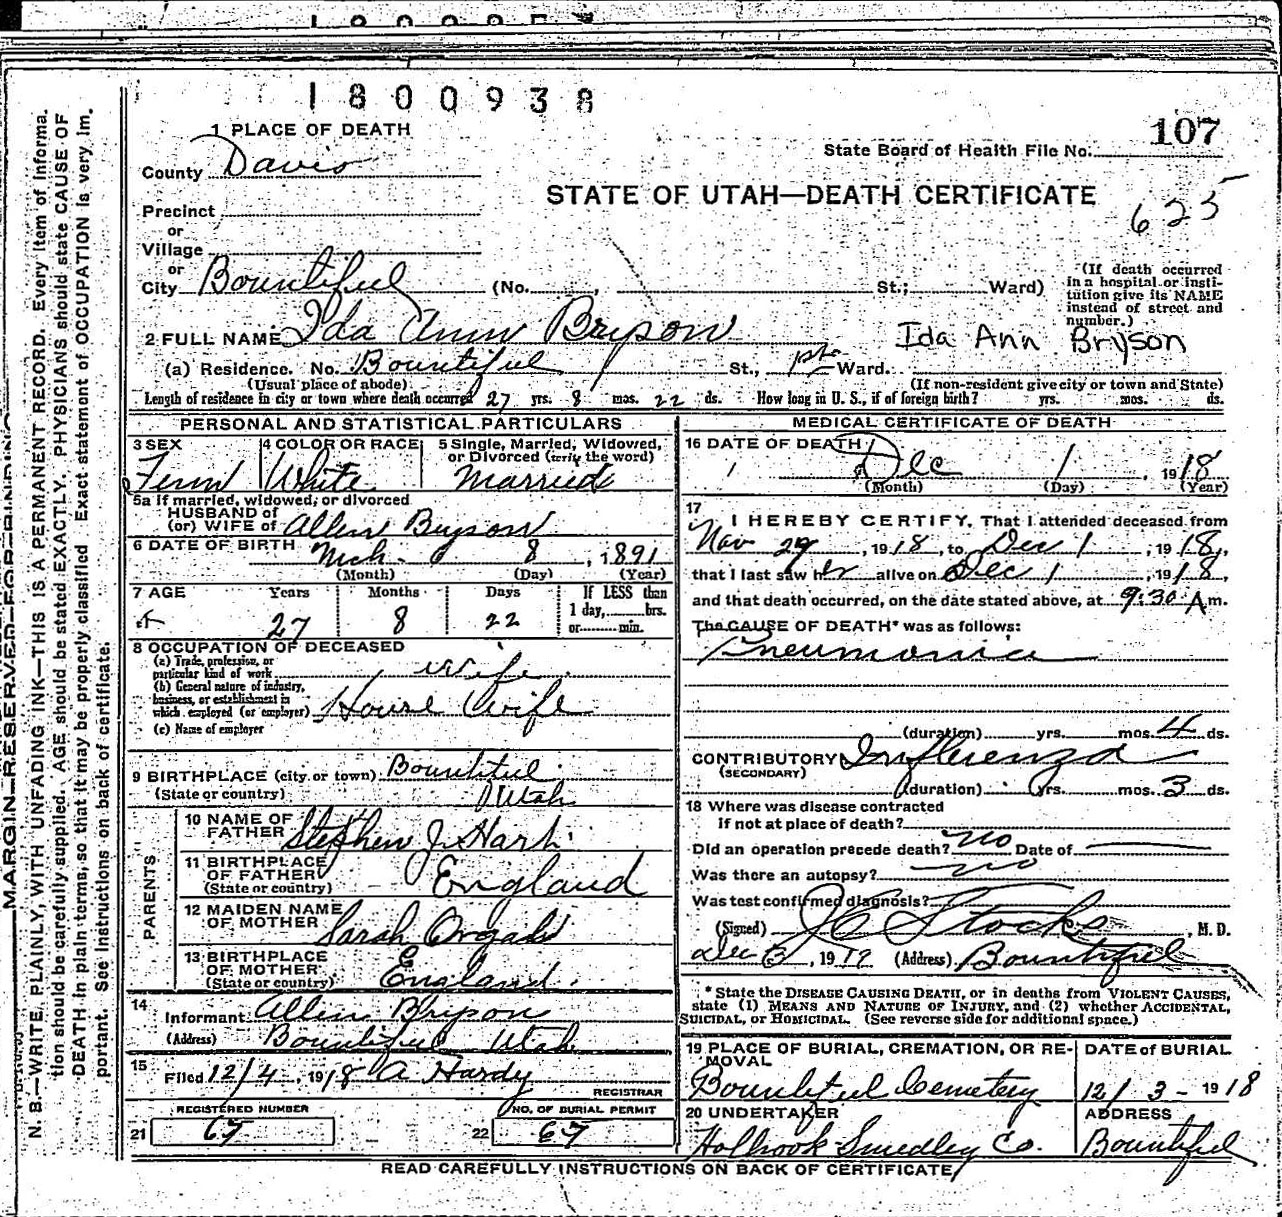 1800938
107
1 PLACE OF DEATH
State Board of Health File No.
County Davis
STATE OF UTAH—DEATH CERTIFICATE
625
Precinct
or
Village
or
City Bountiful (No. , St.; Ward)
(If death occurred in a hospital or insti-
tution give its NAME
instead of street and
number.)
2 FULL NAME Ida Ann Bryson
Ida Ann Bryson
(a) Residence. No. Bountiful St., 1st Ward.
(Usual place of abode) (If non-resident give city or town and State)
Length of residence in city or town where death occurred 27 yrs. 8 mos. 22 ds. How long in U. S., if of foreign birth? yrs. mos. ds.
PERSONAL AND STATISTICAL PARTICULARS
3 SEX 4 COLOR OR RACE 5 Single, Married, Widowed,
or Divorced (write the word)
Fem White Married
5a If married, widowed, or divorced
HUSBAND of
(or) WIFE of Allen Bryson
6 DATE OF BIRTH Mch. 8, 1891
(Month) (Day) (Year)
7 AGE Years Months Days If LESS than
1 day, hrs.
or min.
27 8 22
8 OCCUPATION OF DECEASED
(a) Trade, profession, or
particular kind of work Wife
(b) General nature of industry,
business, or establishment in
which employed (or employer) House Wife
(c) Name of employer
9 BIRTHPLACE (city or town) Bountiful
(State or country) Utah
PARENTS
10 NAME OF
FATHER Stephen J. Hart
11 BIRTHPLACE
OF FATHER
(State or country) England
12 MAIDEN NAME
OF MOTHER Sarah
13 BIRTHPLACE
OF MOTHER
(State or country) England
14
Informant Allen Bryson
(Address) Bountiful Utah
15
Filed 12/4, 1918 A Hardy
REGISTRAR
REGISTERED NUMBER NO. OF BURIAL PERMIT
21 67 22 67
MEDICAL CERTIFICATE OF DEATH
16 DATE OF DEATH
Dec 1 1918
(Month) (Day) (Year)
17
I HEREBY CERTIFY, That I attended deceased from
Nov 29, 1918, to Dec 1, 1918,
that I last saw her alive on Dec 1, 1918,
and that death occurred, on the date stated above, at 9:30 A m.
The CAUSE OF DEATH* was as follows:
Pneumonia
(duration) yrs. mos. 4 ds.
CONTRIBUTORY Influenza
(SECONDARY)
(duration) yrs. mos. 3 ds.
18 Where was disease contracted
if not at place of death?
Did an operation precede death? no Date of
Was there an autopsy? no
Was test confirmed diagnosis?
(Signed) J C Stocks, M. D.
Dec 3, 19 (Address) Bountiful
* State the DISEASE CAUSING DEATH, or in deaths from VIOLENT CAUSES,
state (1) MEANS AND NATURE OF INJURY, and (2) whether ACCIDENTAL,
SUICIDAL, or HOMICIDAL. (See reverse side for additional space.)
19 PLACE OF BURIAL, CREMATION, OR RE-
MOVAL
DATE of BURIAL
Bountiful Cemetery 12/3-1918
20 UNDERTAKER ADDRESS
Holbrook-Smedley Co. Bountiful
READ CAREFULLY INSTRUCTIONS ON BACK OF CERTIFICATE
MARGIN RESERVED FOR BINDING
N. B.—WRITE PLAINLY, WITH UNFADING INK—THIS IS A PERMANENT RECORD. Every item of informa-
tion should be carefully supplied. AGE should be stated EXACTLY. PHYSICIANS should state CAUSE OF
DEATH in plain terms, so that it may be properly classified. Exact statement of OCCUPATION is very im-
portant. See instructions on back of certificate.